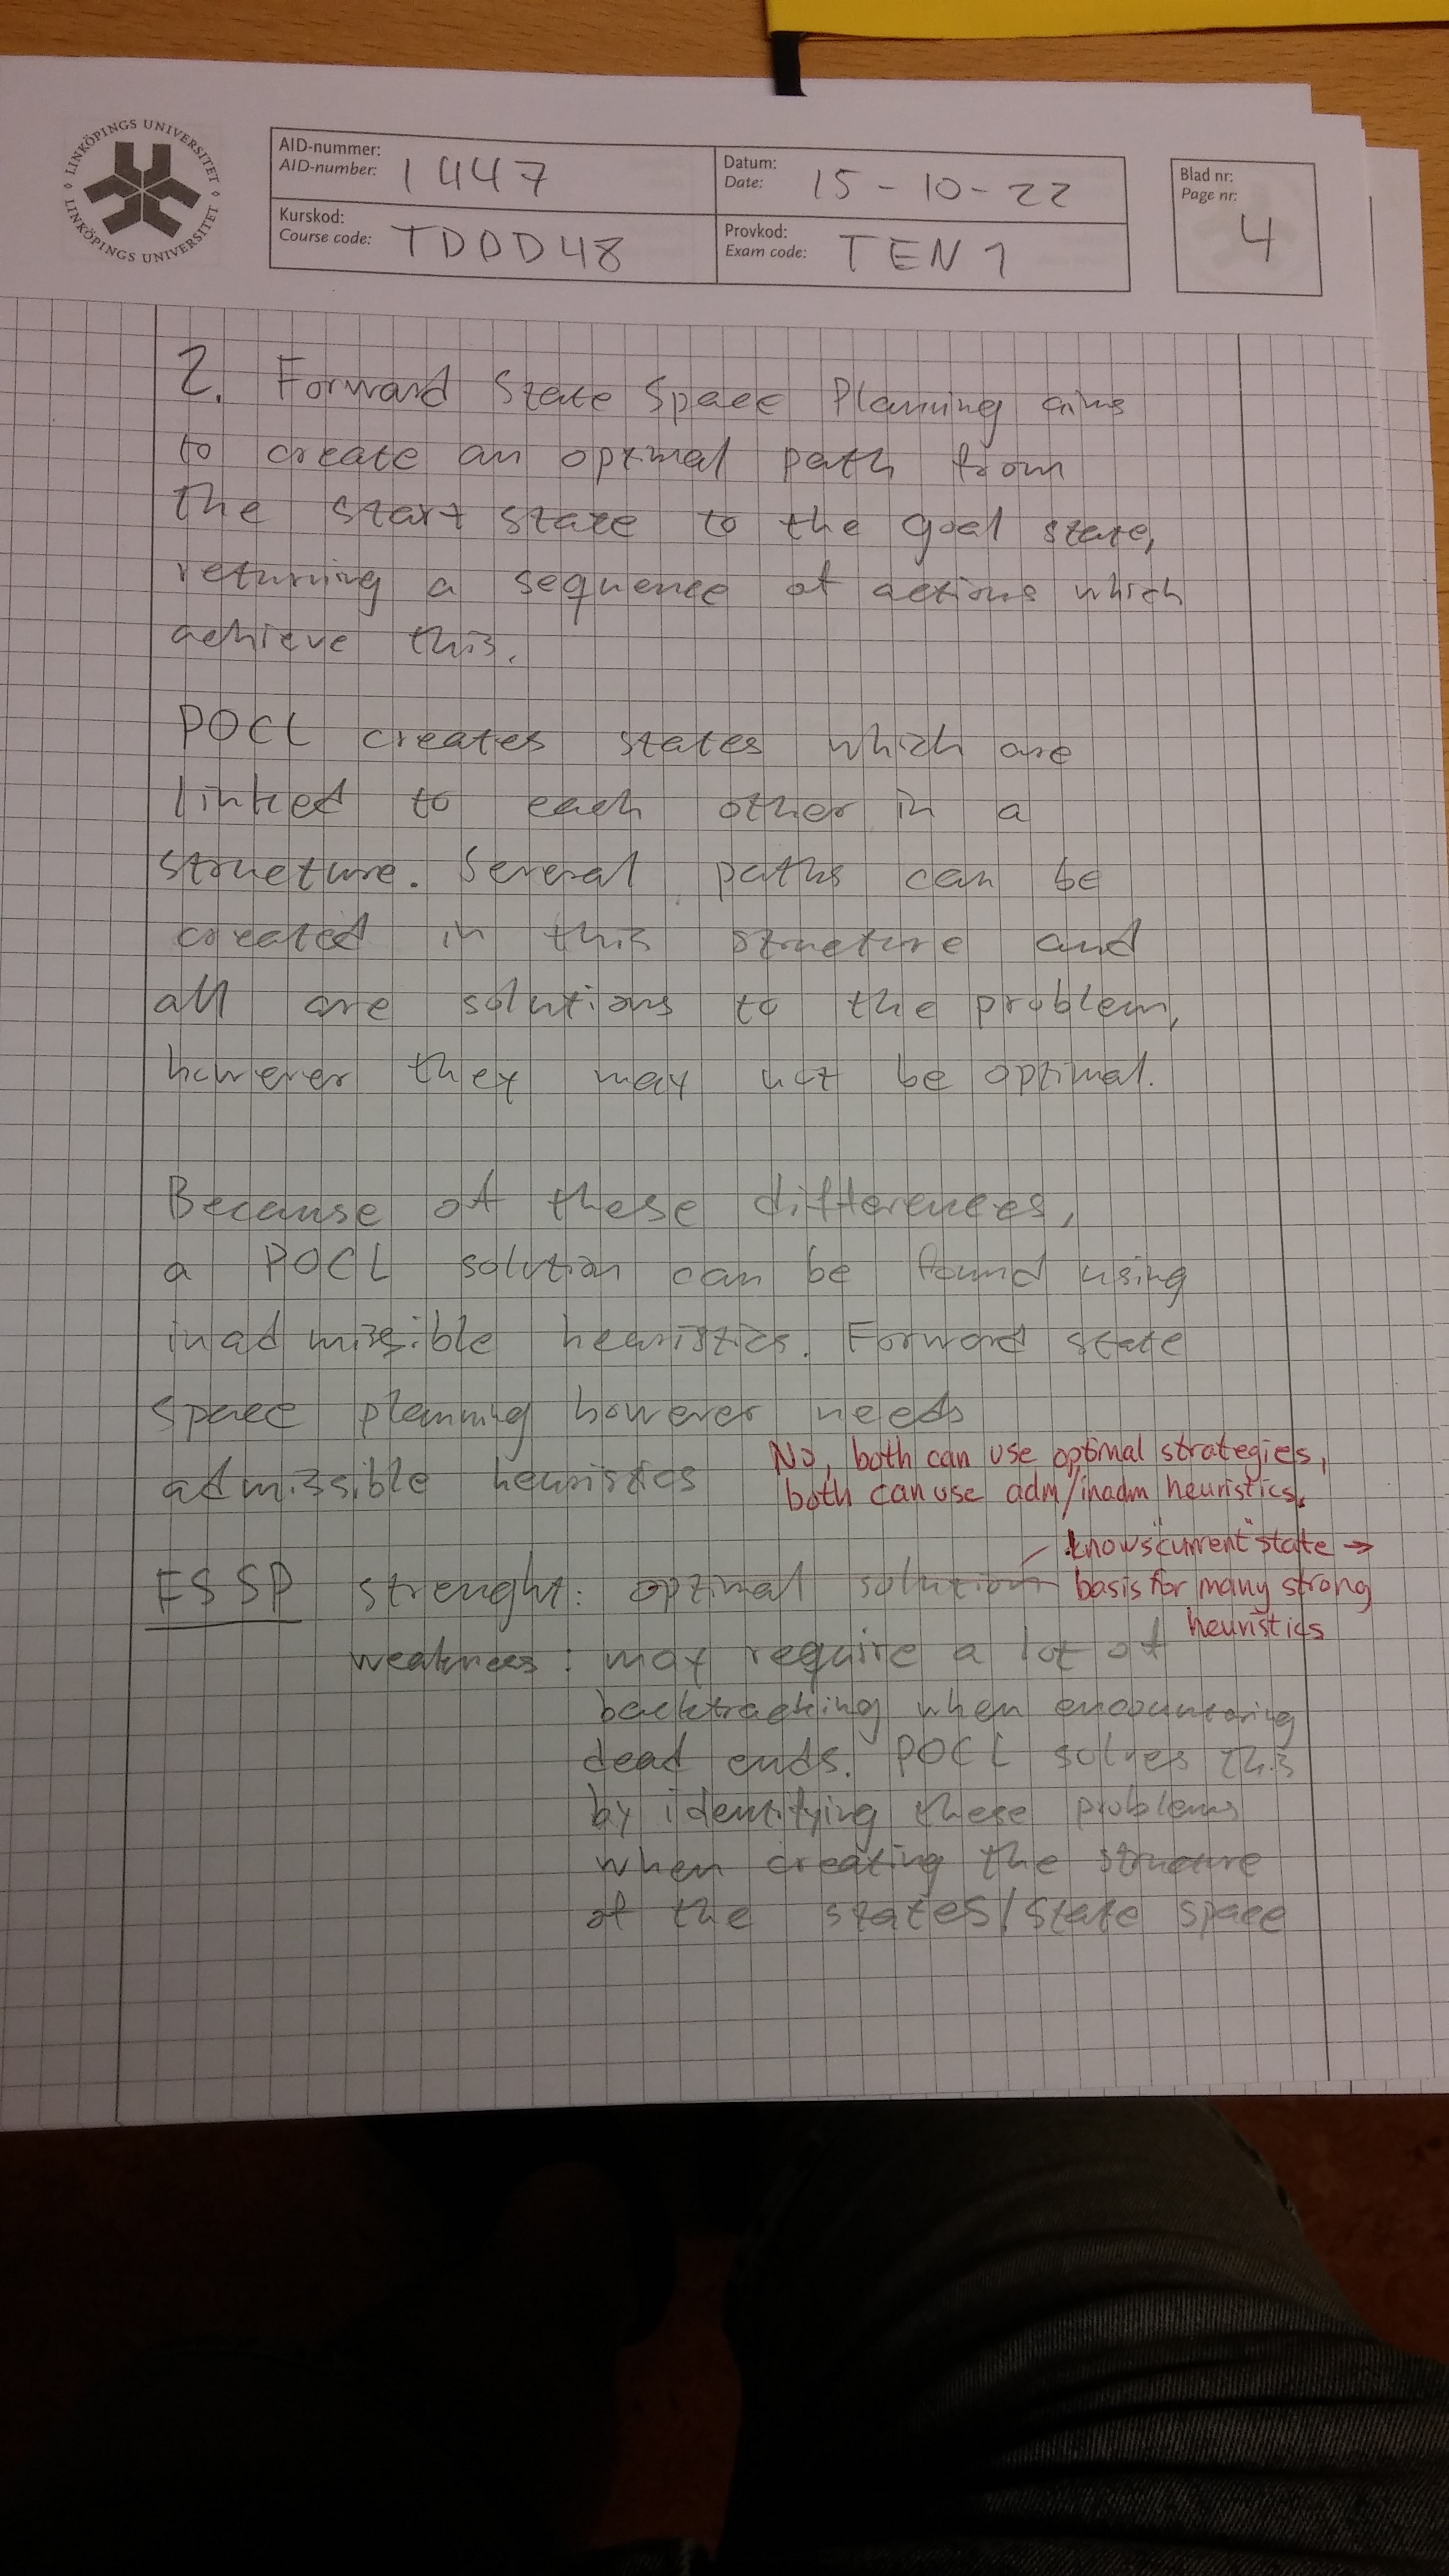 LINKÖPINGS UNIVERSITET
LINKÖPINGS UNIVERSITET
AID-nummer:
AID-number: 1447
Datum:
Date: 15-10-22
Blad nr:
Page nr:
4
Kurskod:
Course code: TDDD48
Provkod:
Exam code: TEN1
2. Forward State Space Planning aims
to create an optimal path from
the start state to the goal state,
returning a sequence of actions which
achieve this.
POCL creates states which are
linked to each other in a
structure. Several paths can be
created in this structure and
all are solutions to the problem,
however they may not be optimal.
Because of these differences,
a POCL solution can be found using
inadmissible heuristics. Forward state
space planning however needs
admissible heuristics
No, both can use optimal strategies,
both can use adm/inadm heuristics.
FSSP strenght: optimal solution
knows "current" state →
basis for many strong
heuristics
weaknees: may require a lot of
backtracking when encountering
dead ends. POCL solves this
by identifying these problems
when creating the structure
of the states/state space